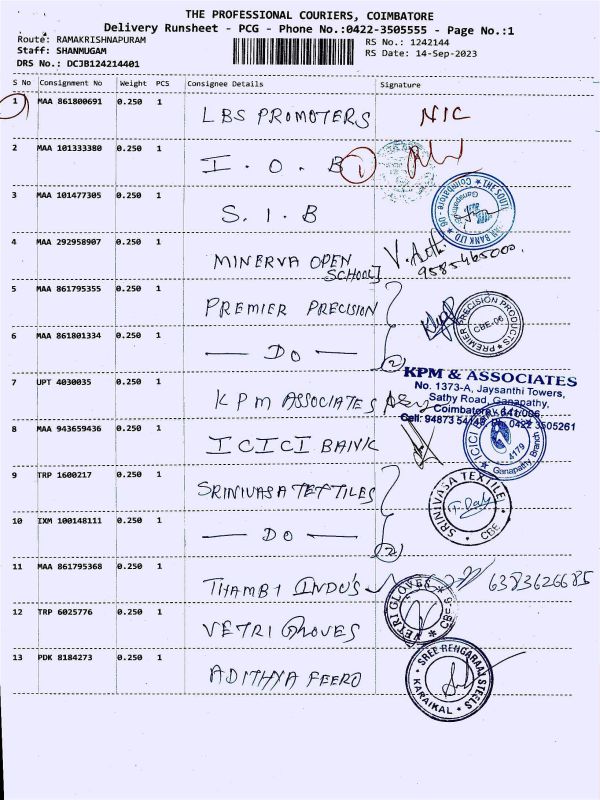 THE PROFESSIONAL COURIERS, COIMBATORE
Delivery Runsheet - PCG - Phone No.:0422-3505555 - Page No.:1
Route: RAMAKRISHNAPURAM
RS No.: 1242144
Staff: SHANMUGAM
RS Date: 14-Sep-2023
DRS No.: DCJB124214401
S No Consignment No Weight PCS Consignee Details Signature
1 MAA 861800691 0.250 1 LBS PROMOTERS NIC
2 MAA 101333380 0.250 1 I.O.B 1
3 MAA 101477305 0.250 1 S.I.B
BANK LTD Ganapathy Coimbatore
4 MAA 292958907 0.250 1 MINERVA OPEN SCHOOL]
9585465000.
5 MAA 861795355 0.250 1 PREMIER PRECISION
PREMIER PRECISION PRODUCTS CBE-06
6 MAA 861801334 0.250 1 — DO — 2
KPM & ASSOCIATES
No. 1373-A, Jaysanthi Towers,
Sathy Road, Ganapathy,
Coimbatore - 641006.
Cell: 94873 54140, Ph: 0422 3505261
7 UPT 4030035 0.250 1 KPM ASSOCIATES
8 MAA 943659436 0.250 1 ICICI BANK
ICICI 4179 Ganapathy Branch
9 TRP 1600217 0.250 1 SRINIVASA TETTILES
SRINIVASA TEXTILE CBE
10 IXM 100148111 0.250 1 — DO — 2
11 MAA 861795368 0.250 1 THAMBI INDU'S 6383626685
12 TRP 6025776 0.250 1 VETRI GLOVES
VETRI GLOVES
13 PDK 8184273 0.250 1 ADITHYA FEERO
SREE RENGARAAJ STEELS KARAIKAL